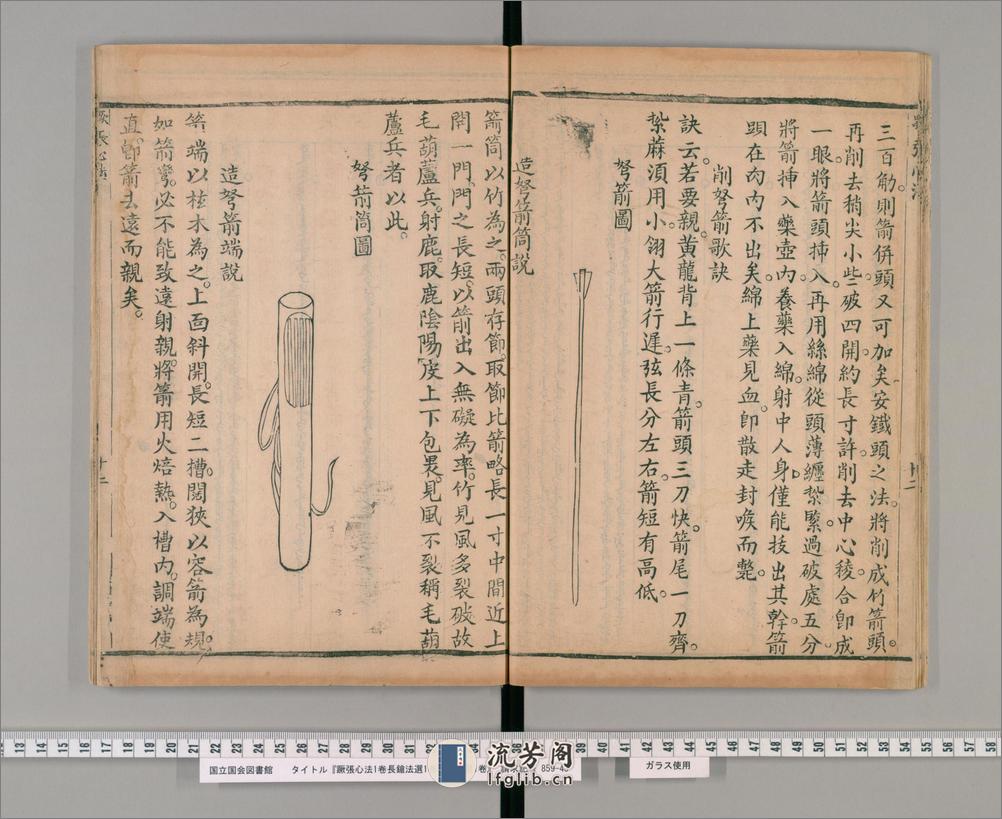 三百觔。則箭倂頭又可加矣。安鐵頭之法。將削成竹箭頭。
再削去稍尖小些。破四開。約長寸許。削去中心稜。合卽成
一眼。將箭頭揷入。再用絲綿從頭薄纏紥緊。過破處五分。
將箭揷入藥壺內。養藥入綿。射中人身。僅能技出其幹。箭
頭在肉內不出矣。綿上藥見血。卽散走封喉而斃。
削弩箭歌訣
訣云。若要親。黃龍背上一條青。箭頭三刀快。箭尾一刀齊。
紥蔴須用小。翎大箭行遲。弦長分左右。箭短有高低。
弩箭圖
造弩箭筒說
箭筒以竹為之。兩頭存節。取節比箭略長一寸。中間近上
開一門。門之長短。以箭出入無礙為率。竹見風多裂破。故
毛葫蘆兵。射鹿。取鹿陰陽皮上下包裹。見風不裂。稱毛葫
蘆兵者以此。
弩箭筒圖
造弩箭端說
箭端以桂木為之。上面斜開。長短二槽。闊狹以容箭為規。
如箭彎。必不能致遠射親。將箭用火焙熱。入槽內。調端使
直。卽箭去遠而親矣。
十二
13 14 15 16 17 18 19 20 21 22 23 24 25 26 27 28 29 30 31 32 33 34 35 36 37 38 39 40 41 42 43 44 45 46 47 48 49 50 51 52 53 54 55 56 57 58
国立国会図書館 タイトル『厥張心法1卷長鎗法選1 卷』 請求記号 859-43
ガラス使用
流芳阁
lfglib.cn